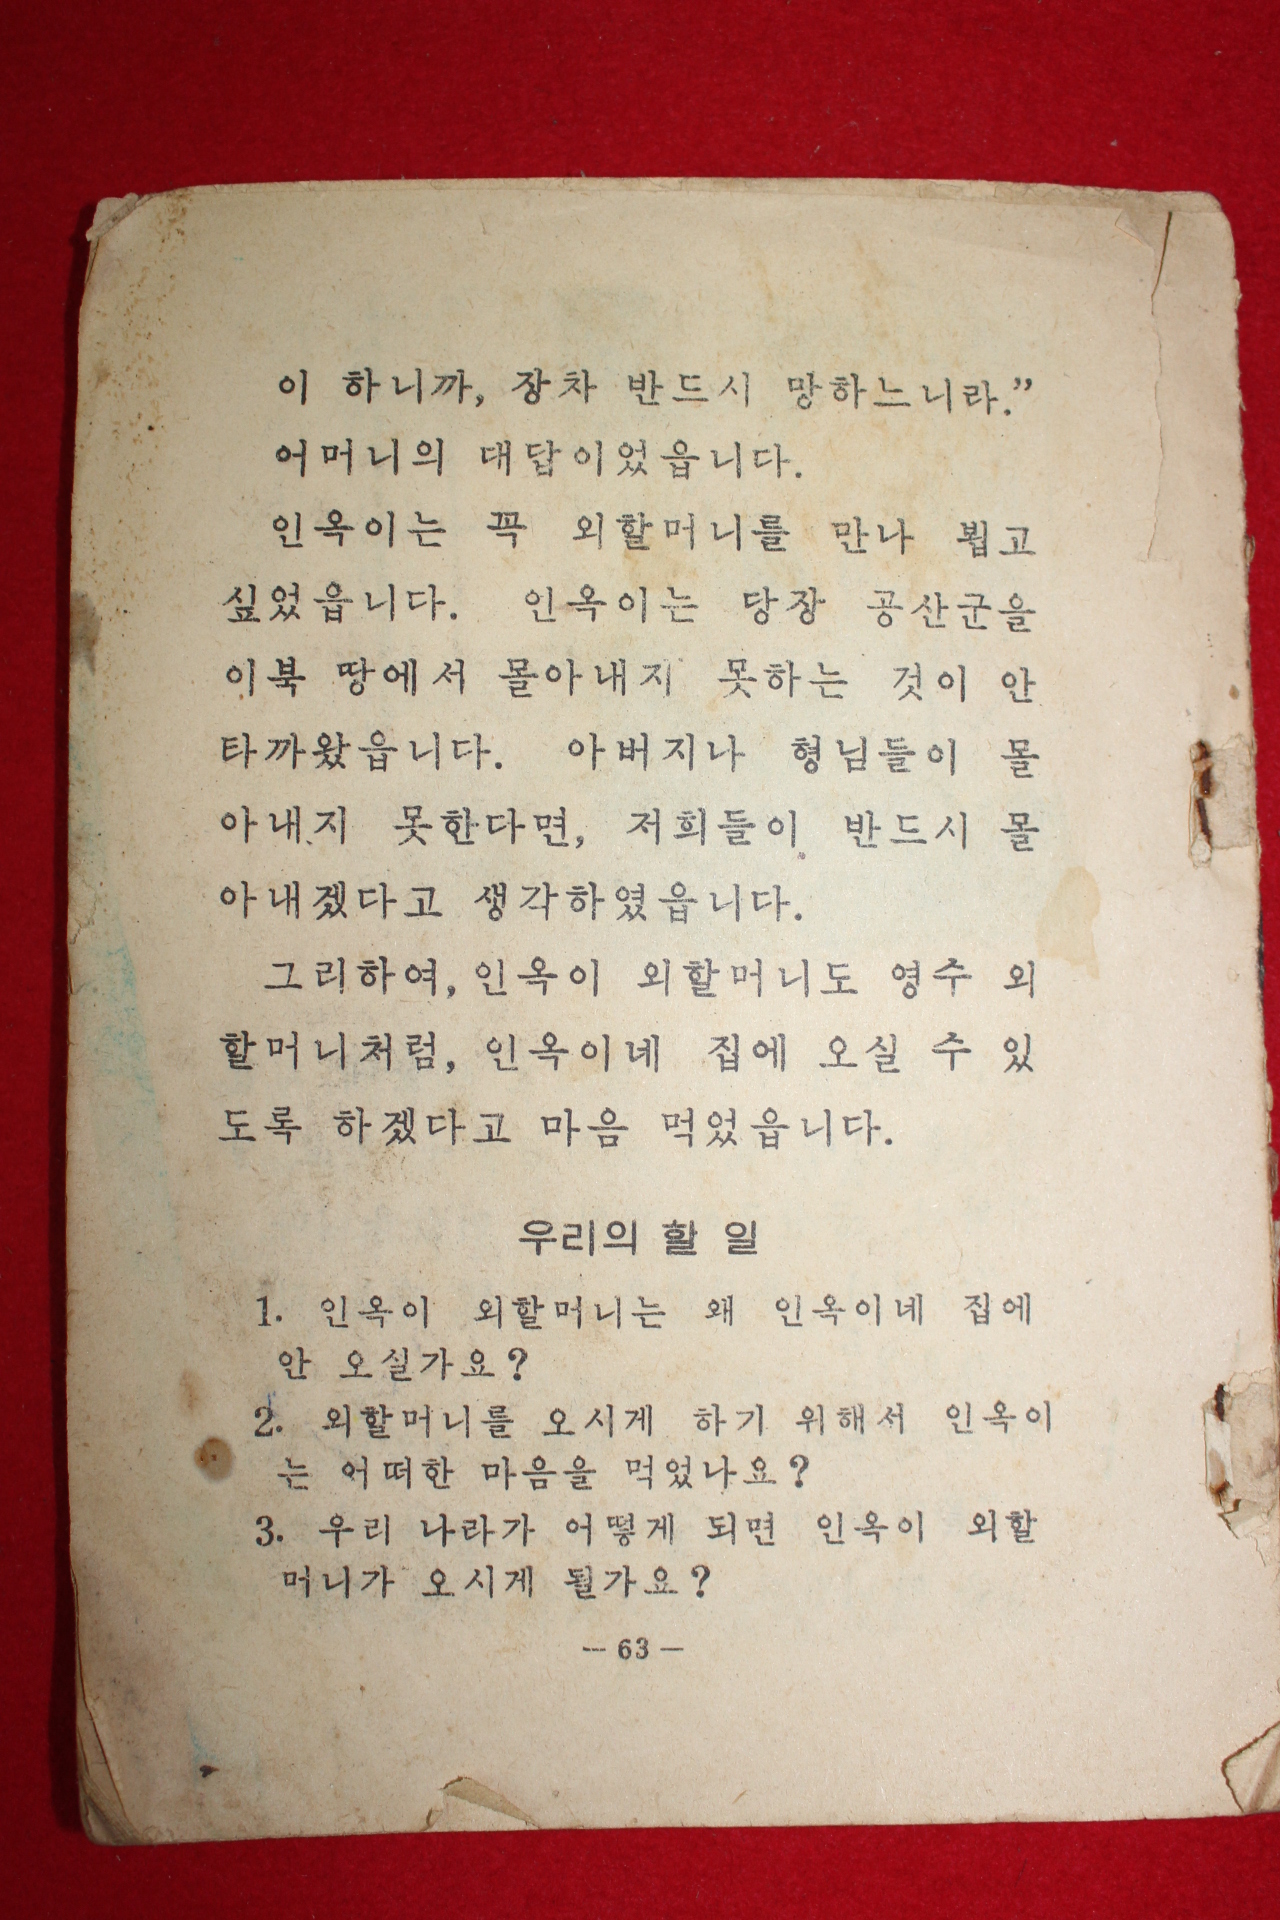 이 하니까, 장차 반드시 망하느니라.”
어머니의 대답이었읍니다.
인옥이는 꼭 외할머니를 만나 뵙고
싶었읍니다. 인옥이는 당장 공산군을
이북 땅에서 몰아내지 못하는 것이 안
타까왔읍니다. 아버지나 형님들이 몰
아내지 못한다면, 저희들이 반드시 몰
아내겠다고 생각하였읍니다.
그리하여, 인옥이 외할머니도 영주 외
할머니처럼, 인옥이네 집에 오실 수 있
도록 하겠다고 마음 먹었읍니다.
우리의 할 일
1. 인옥이 외할머니는 왜 인옥이네 집에
안 오실가요?
2. 외할머니를 오시게 하기 위해서 인옥이
는 어떠한 마음을 먹었나요?
3. 우리 나라가 어떻게 되면 인옥이 외할
머니가 오시게 될가요?
— 63 —